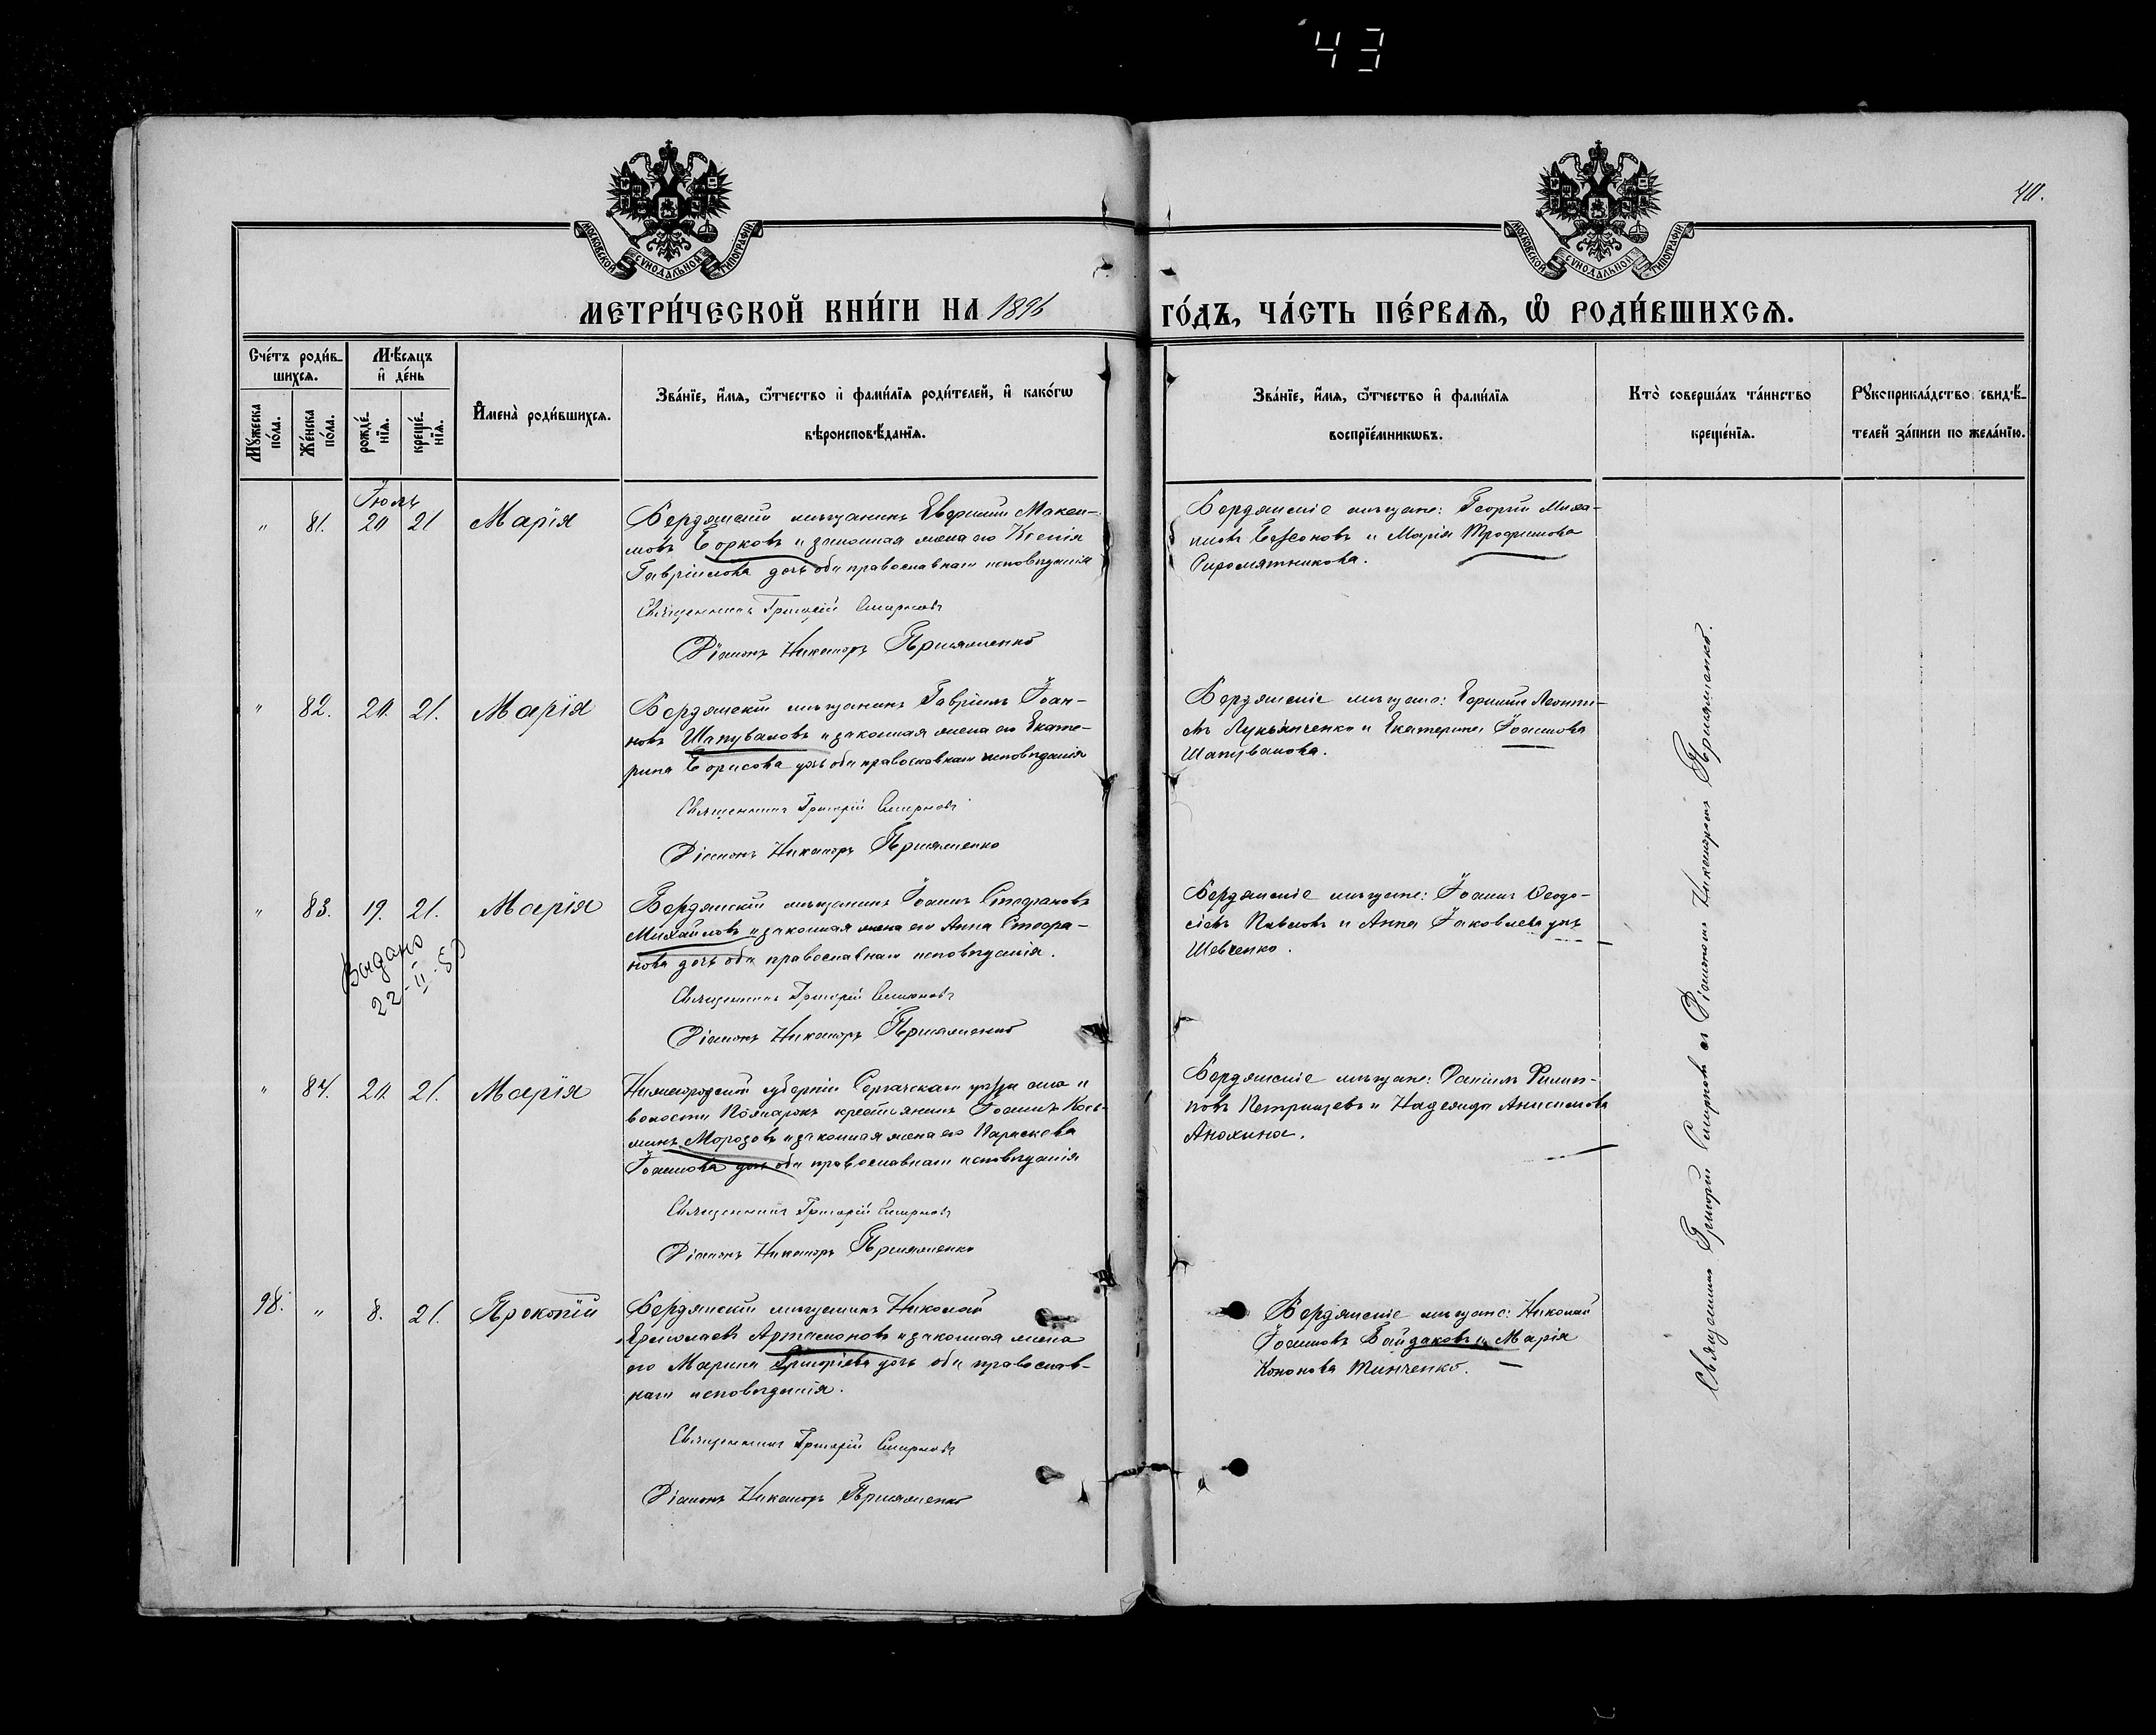 43
40.
МОСКОВСКОЙ СѴНОДАЛЬНОЙ ТИПОГРАФІИ
МОСКОВСКОЙ СѴНОДАЛЬНОЙ ТИПОГРАФІИ
МЕТРИ́ЧЕСКОЙ КНИ́ГИ НА 1896 ГО́ДЪ, ЧА́СТЬ ПЕ́РВАѦ, Ѽ РОДИ́ВШИХСѦ.
Сче́тъ роди́в-
шихсѧ.
Мꙋ́жеска
по́ла.
Же́нска
по́ла.
Мѣ́сѧцъ
и҆ де́нь
рожде́-
нїѧ.
креще́-
нїѧ.
И҆мена̀ роди́вшихсѧ.
Зва́нїе, и҆́мѧ, ѻ҆́тчество и҆ фами́лїѧ роди́телей, и҆ како́гѡ
вѣроисповѣ́данїѧ.
Зва́нїе, и҆́мѧ, ѻ҆́тчество и҆ фами́лїѧ
воспрїе́мникѡвъ.
Кто̀ соверша́лъ та́инство
креще́нїѧ.
Рꙋкоприкла́дство свидѣ́-
телей за́писи по жела́нїю.
Іюль
" 81. 20 21 Марія
Бердянскій мѣщанинъ Евфимій Макси-
мовъ Борковъ и законная жена его Ксенія
Гавріилова дочь оба православнаго исповѣданія
Священникъ Григорій Смирновъ
Діаконъ Никаноръ Прияженко
Бердянскіе мѣщане: Георгій Миха-
иловъ и Марія Трофимова
Сиромятникова.
" 82. 20. 21. Марія
Бердянскій мѣщанинъ Гавріилъ Іоан-
новъ Шапуваловъ и законная жена его Екате-
рина Борисова дочь оба православнаго исповѣданія
Священникъ Григорій Смирновъ
Діаконъ Никаноръ Прияженко
Бердянскіе мѣщане: Леонтi-
евъ Лукьянченко и Екатерина Іоаннова
Шапувалова.
" 83. 19. 21. Марія
Бердянскій мѣщанинъ Іоаннъ Стефановъ
Михайловъ и законная жена его Анна Стефа-
нова дочь оба православнаго исповѣданія.
Выдано
22-II-50
Священникъ Григорій Смирновъ
Діаконъ Никаноръ Прияженко
Бердянскіе мѣщане: Іоаннъ Ѳеодо-
сіевъ Павловъ и Анна Іаковлева дочь
Шевченко.
" 84. 20. 21. Марія
Нижегородской губерніи Сергачскаго уѣзда
волости крестьянинъ Іоаннъ Кось-
минъ Морозовъ и законная жена его Параскева
Іоаннова дочь оба православнаго исповѣданія
Священникъ Григорій Смирновъ
Діаконъ Никаноръ Прияженко
Бердянскіе мѣщане: Даніилъ Филип-
повъ Петрищевъ и Надежда Анисимова
Анохина.
98. " 8. 21. Прокопій
Бердянскій мѣщанинъ Николай
Ермолаевъ Артамоновъ и законная жена
его Марина Григоріева дочь оба православ-
наго исповѣданія.
Священникъ Григорій Смирновъ
Діаконъ Никаноръ Прияженко
Бердянскіе мѣщане: Николай
Іоанновъ Байдаковъ и Марія
Кононова Тинченко.
Священникъ Григорій Смирновъ съ Діакономъ Никаноромъ Прияженко.